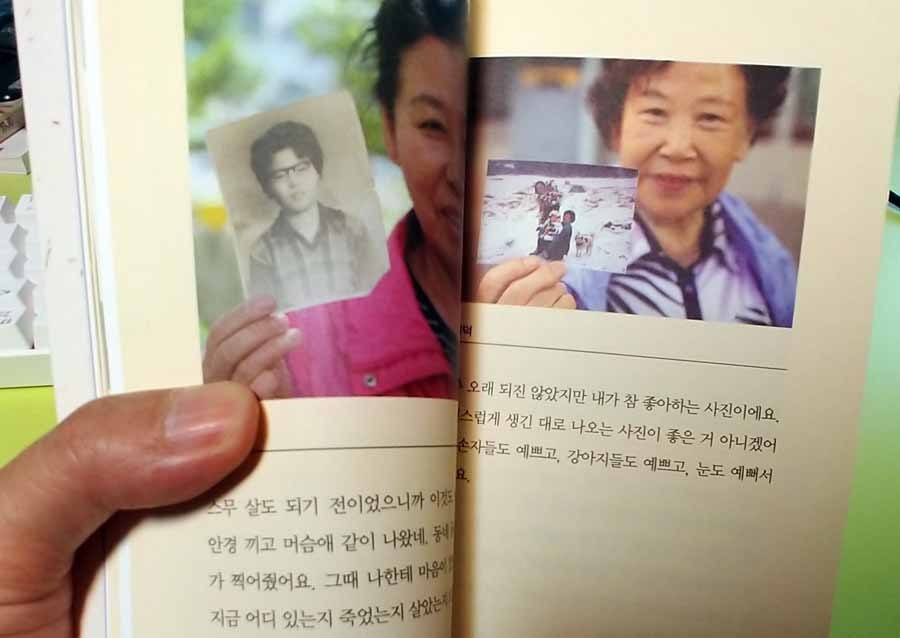 스무 살도 되기 전이었으니까 이것도
안경 끼고 머슴애 같이 나왔네. 동네
가 찍어줬어요. 그때 나한테 마음이
지금 어디 있는지 죽었는지 살았는지
덕
오래 되진 않았지만 내가 참 좋아하는 사진이에요.
스럽게 생긴 대로 나오는 사진이 좋은 거 아니겠어
손자들도 예쁘고, 강아지들도 예쁘고, 눈도 예뻐서
요.